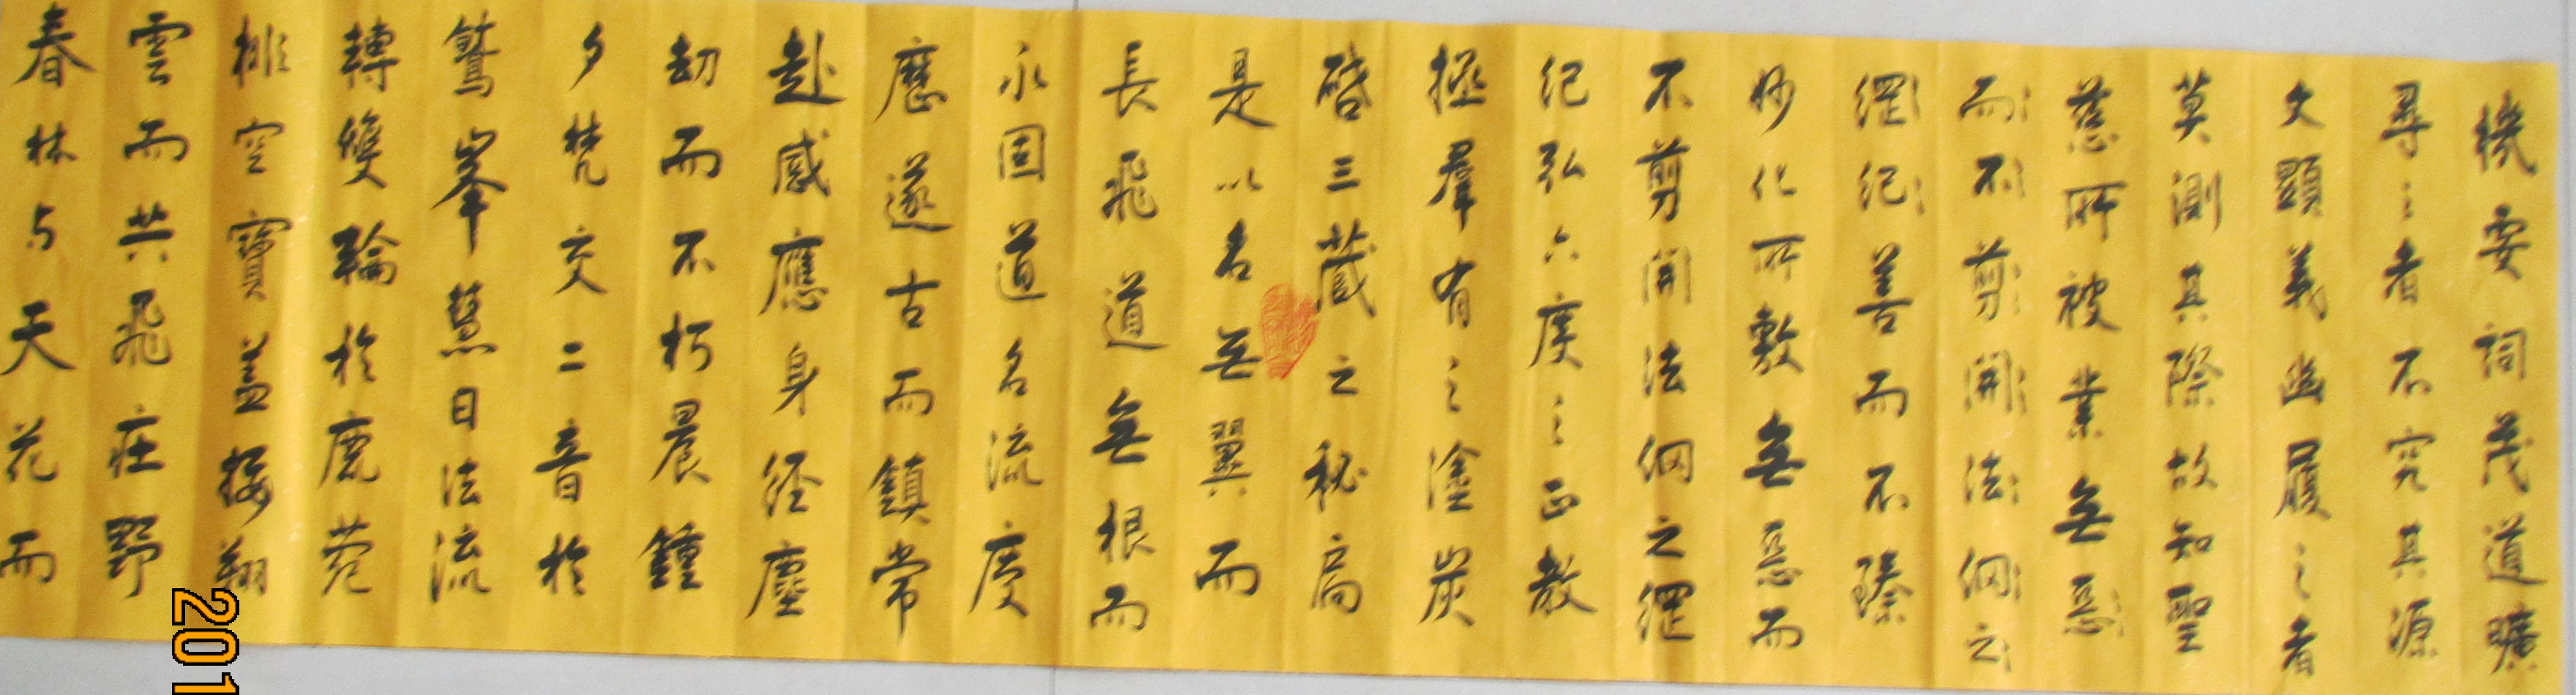 機要詞茂道曠
尋之者不究其源
文顯義幽履之者
莫測其際故知聖
慈所被業無惡
而不剪開法網之
綱紀善而不臻
妙化所敷無惡而
不剪開法網之綱
紀弘六度之正教
拯羣有之塗炭
啓三藏之秘扃
是以名無翼而
長飛道無根而
永固道名流慶
歷遂古而鎮常
赴感應身經塵
劫而不朽晨鍾
夕梵交二音於
鷲峯慧日法流
轉雙輪於鹿菀
排空寶蓋接翔
雲而共飛莊野
春林与天花而
201